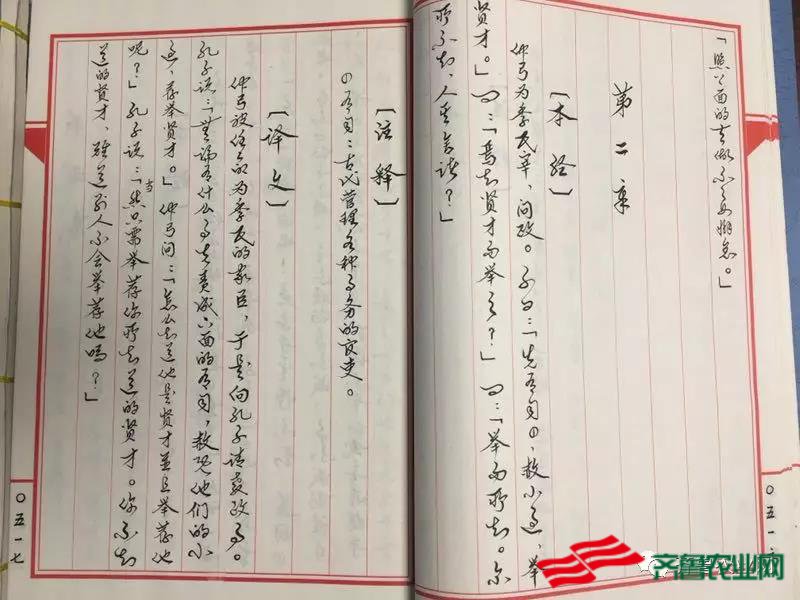 「照上面的去做不要懈怠。」
第二章
〔本经〕
仲弓为季氏宰，问政。子曰：「先有司①，赦小过，举
贤才。」曰：「焉知贤才而举之？」曰：「举而所知。尔
所不知，人其舍诸？」
〇五一
〔注释〕
①有司：古代管理各种事务的官吏。
〔译文〕
仲弓被任命为季氏的家臣，于是向孔子请教政事。
孔子说：「无论有什么事先责成下面的有司，赦免他们的小
过，荐举贤才。」仲弓问：「怎么知道他是贤才并且举荐他
呢？」孔子说：「当然只需举荐你所知道的贤才。你不知
道的贤才，难道别人不会举荐他吗？」
〇五一七
齐鲁农业网